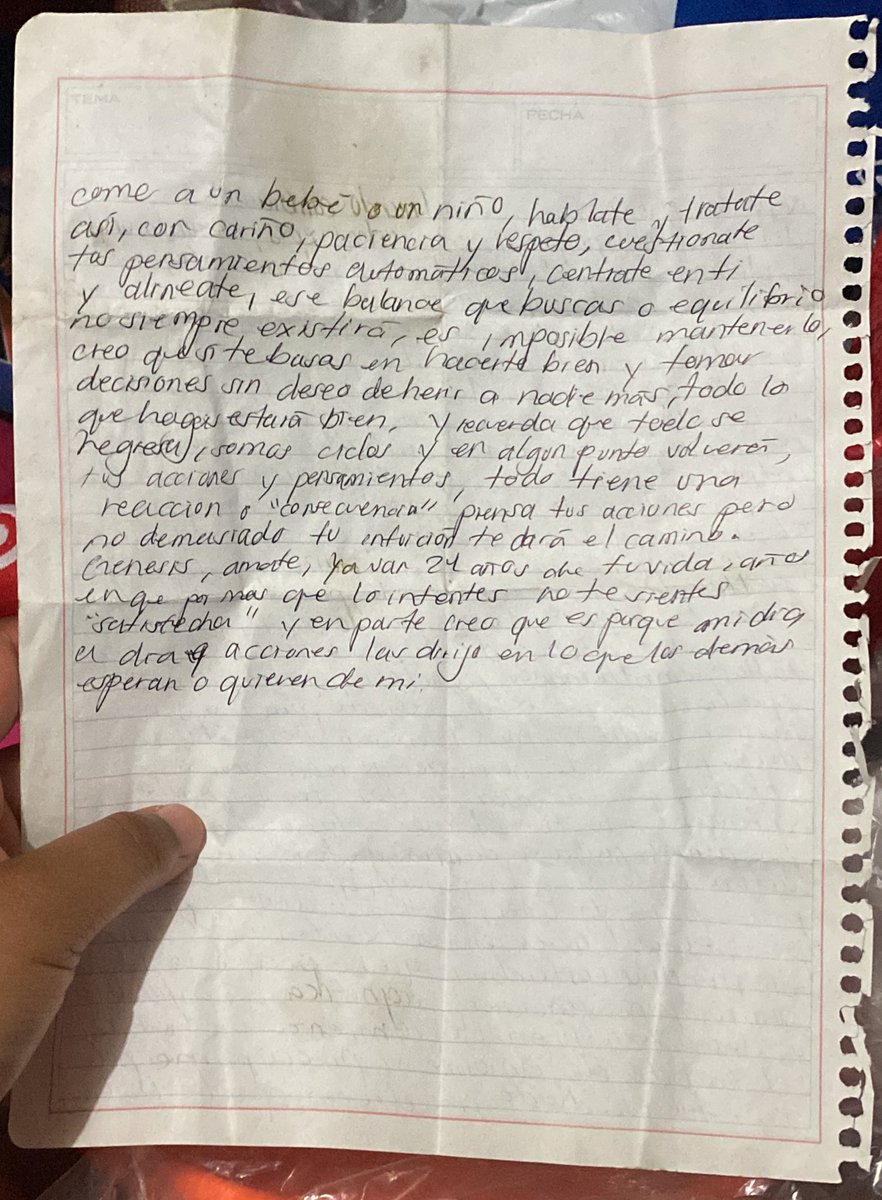 TEMA
FECHA
come a un bebé o un niño, hablate y tratate
así, con cariño, paciencia y respeto, cuestionate
tus pensamientos automáticos, centrate en ti
y alineate, ese balance que buscas o equilibrio
no siempre existirá, es imposible mantenerlo,
creo que si te basas en hacerte bien y tomar
decisiones sin deseo de herir a nadie más, todo lo
que hagas estará bien, y recuerda que todo se
regresa, somos ciclos y en algun punto volverán,
tus acciones y pensamientos, todo tiene una
reaccion o "consecuencia" piensa tus acciones pero
no demasiado tu intuición te dará el camino.
Genesis, amate, ya van 24 años de tu vida, años
en que por mas que lo intentes no te sientes
"satisfecha" y en parte creo que es porque mi dia
a dia y acciones las dirijo en lo que los demás
esperan o quieren de mi.